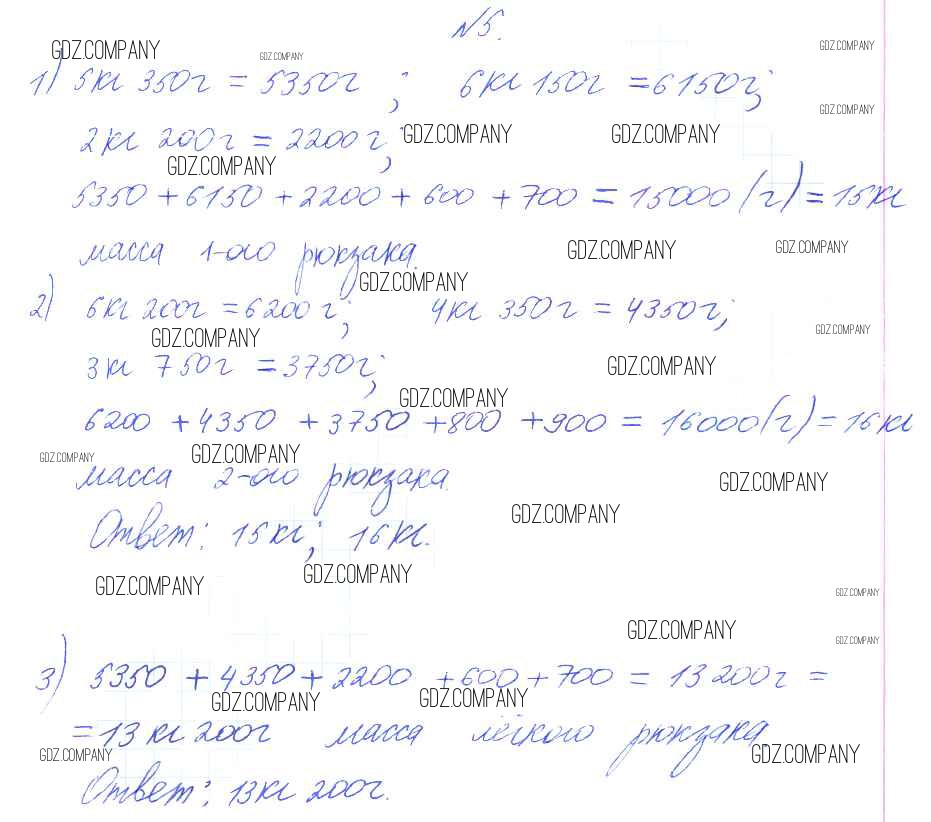 №5.
GDZ.COMPANY GDZ.COMPANY GDZ.COMPANY
1) 5кг 350г = 5350г ; 6кг 150г = 6150г;
GDZ.COMPANY
2кг 200г = 2200г; GDZ.COMPANY GDZ.COMPANY
GDZ.COMPANY
5350 + 6150 + 2200 + 600 + 700 = 15000 (г) = 15кг
масса 1-ого рюкзака. GDZ.COMPANY GDZ.COMPANY
GDZ.COMPANY
2) 6кг 200г = 6200г; 4кг 350г = 4350г;
GDZ.COMPANY GDZ.COMPANY
3кг 750г = 3750г; GDZ.COMPANY
GDZ.COMPANY
6200 + 4350 + 3750 + 800 + 900 = 16000(г) = 16кг
GDZ.COMPANY GDZ.COMPANY
масса 2-ого рюкзака. GDZ.COMPANY
GDZ.COMPANY
Ответ: 15кг; 16кг.
GDZ.COMPANY GDZ.COMPANY GDZ.COMPANY
GDZ.COMPANY GDZ.COMPANY
3) 5350 + 4350 + 2200 + 600 + 700 = 13200г =
GDZ.COMPANY GDZ.COMPANY
= 13кг 200г масса лёгкого рюкзака.
GDZ.COMPANY GDZ.COMPANY
Ответ: 13кг 200г.